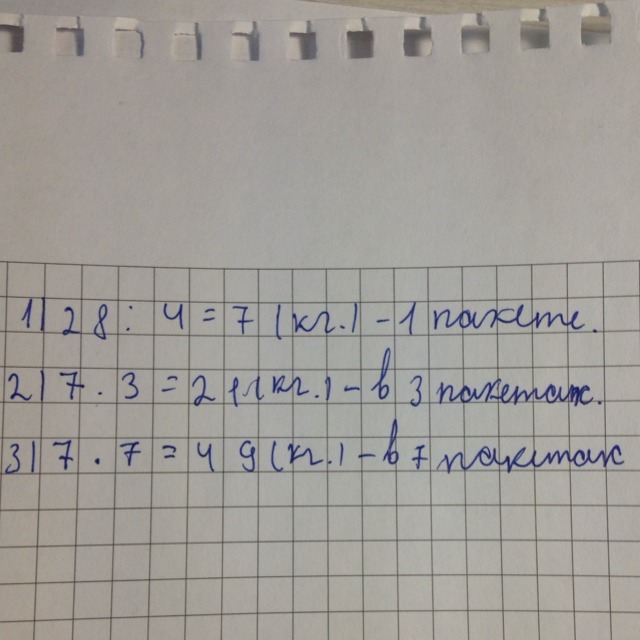 1) 28 : 4 = 7 (кг.) - 1 пакете.
2) 7 . 3 = 21 (кг.) - в 3 пакетах.
3) 7 . 7 = 49 (кг.) - в 7 пакетах